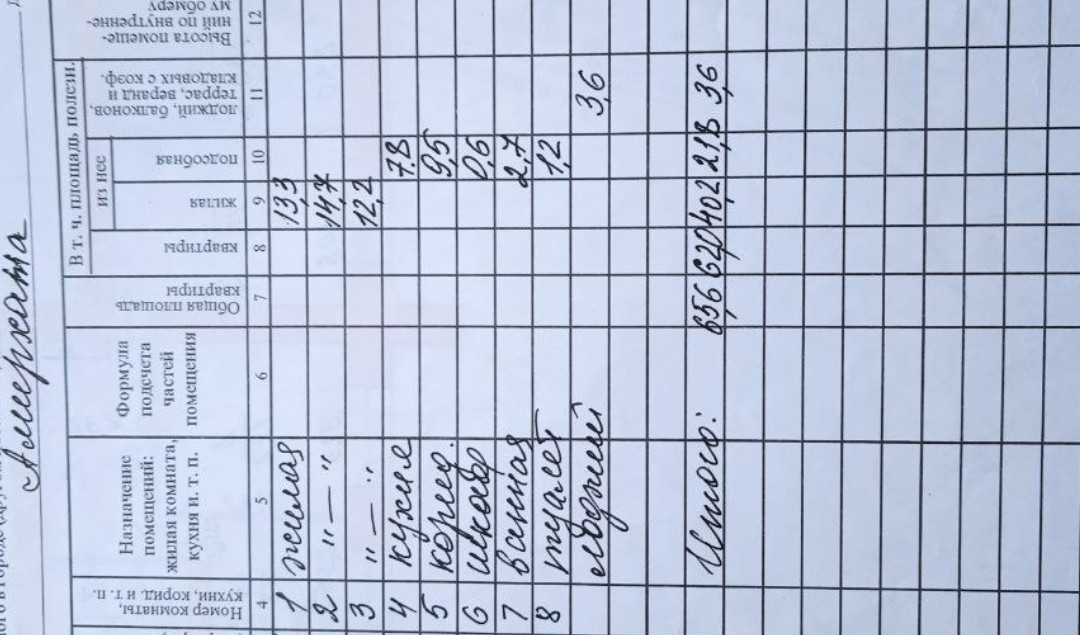 Амерхата
Номер комнаты, кухни, корид. и т. п.
Назначение помещений: жилая комната, кухня и. т. п.
Формула подсчета частей помещения
Общая площадь квартиры
В т. ч. площадь полезн.
квартиры
из нее
жилая
подсобная
лоджий, балконов, террас, веранд и кладовых с коэф.
Высота помеще-ний по внутренне-му обмеру
4 5 6 7 8 9 10 11 12
1 жилая 13,3
2 "—" 14,7
3 "—" 12,2
4 кухня 7.8
5 корид. 9,5
6 шкафр 0,6
7 ванная 2,7
8 туалет 1,2
лоджий 3,6
Итого: 65,6 62,0 40,2 21,8 3,6